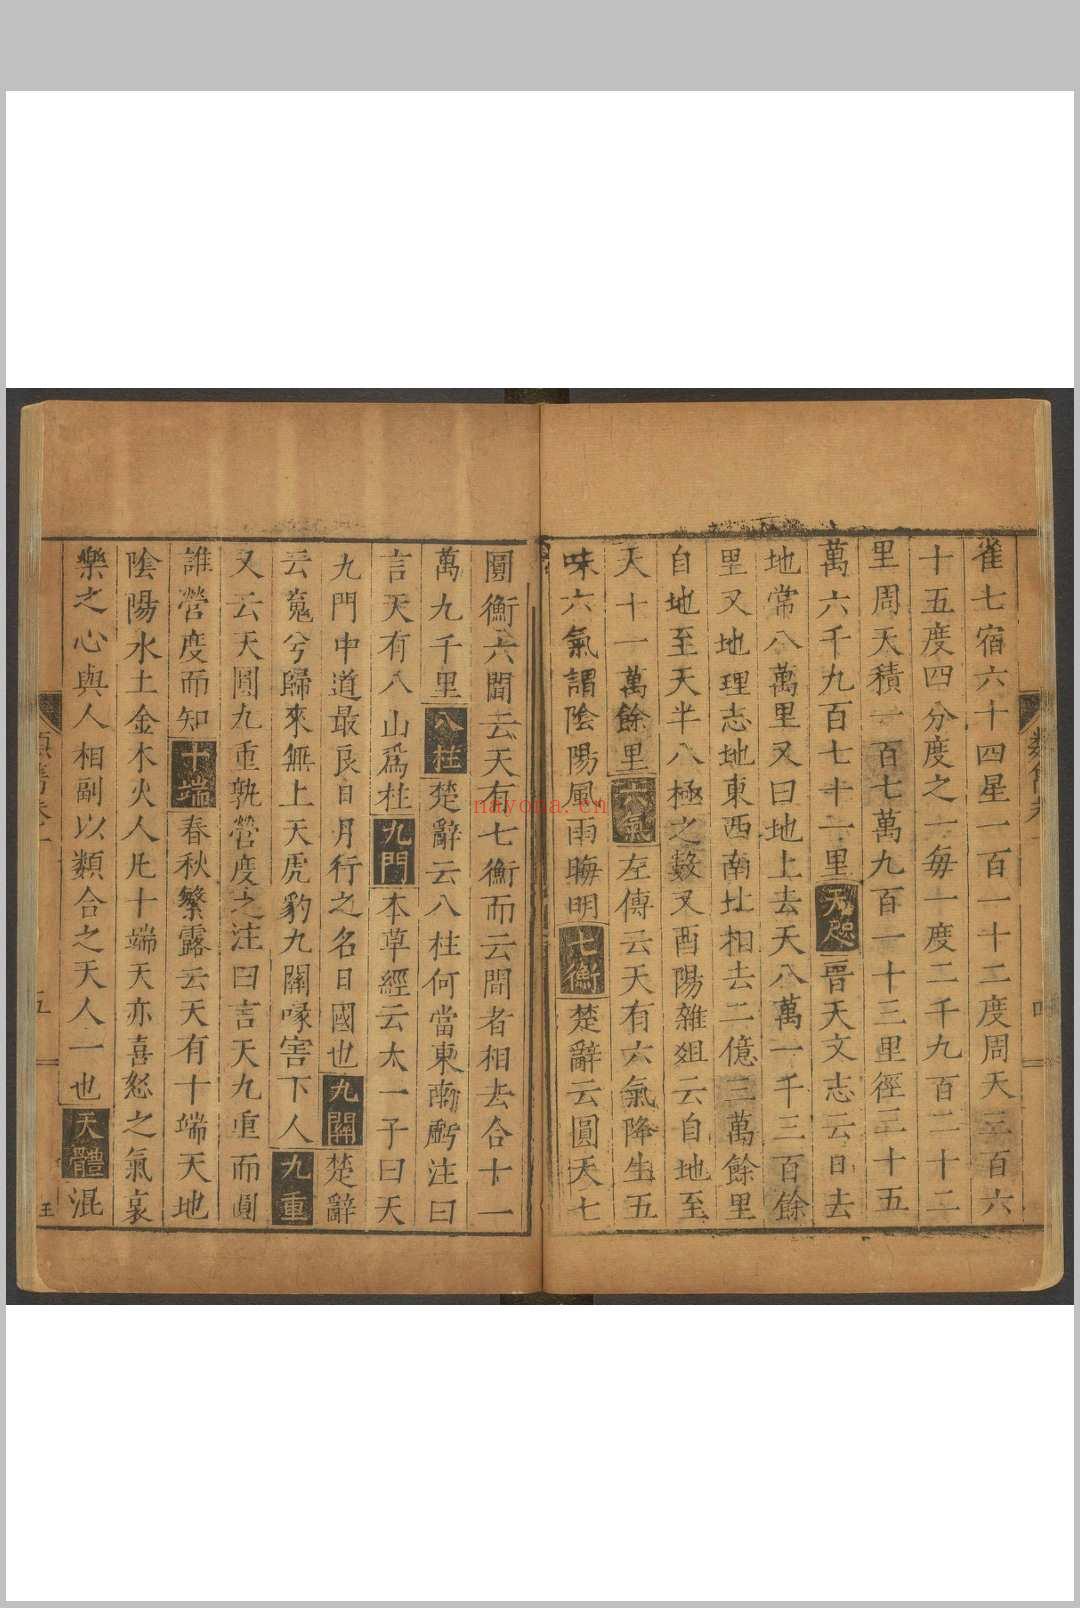 雀七宿六十四星一百一十二度周天三百六
十五度四分度之一每一度二千九百二十二
里周天積一百七萬九百一十三里徑三十五
萬六千九百七十一里天咫晉天文志云日去
地常八萬里又曰地上去天八萬一千三百餘
里又地理志地東西南北相去二億三萬餘里
自地至天半八極之數又酉陽雜俎云自地至
天十一萬餘里六氣左傳云天有六氣降生五
味六氣謂陰陽風雨晦明七衡楚辭云圓天七
圜衡六間云天有七衡而云間者相去合十一
萬九千里八柱楚辭云八柱何當東南虧注曰
言天有八山爲柱九門本草經云太一子曰天
九門中道最良日月行之名日國也九關楚辭
云䰟兮歸來無上天虎豹九關啄害下人九重
又云天圓九重孰營度之注曰言天九重而圓
誰營度而知十端春秋繁露云天有十端天地
陰陽水土金木火人凡十端天亦喜怒之氣哀
樂之心與人相副以類合之天人一也天體混
五
王
nayona.cn